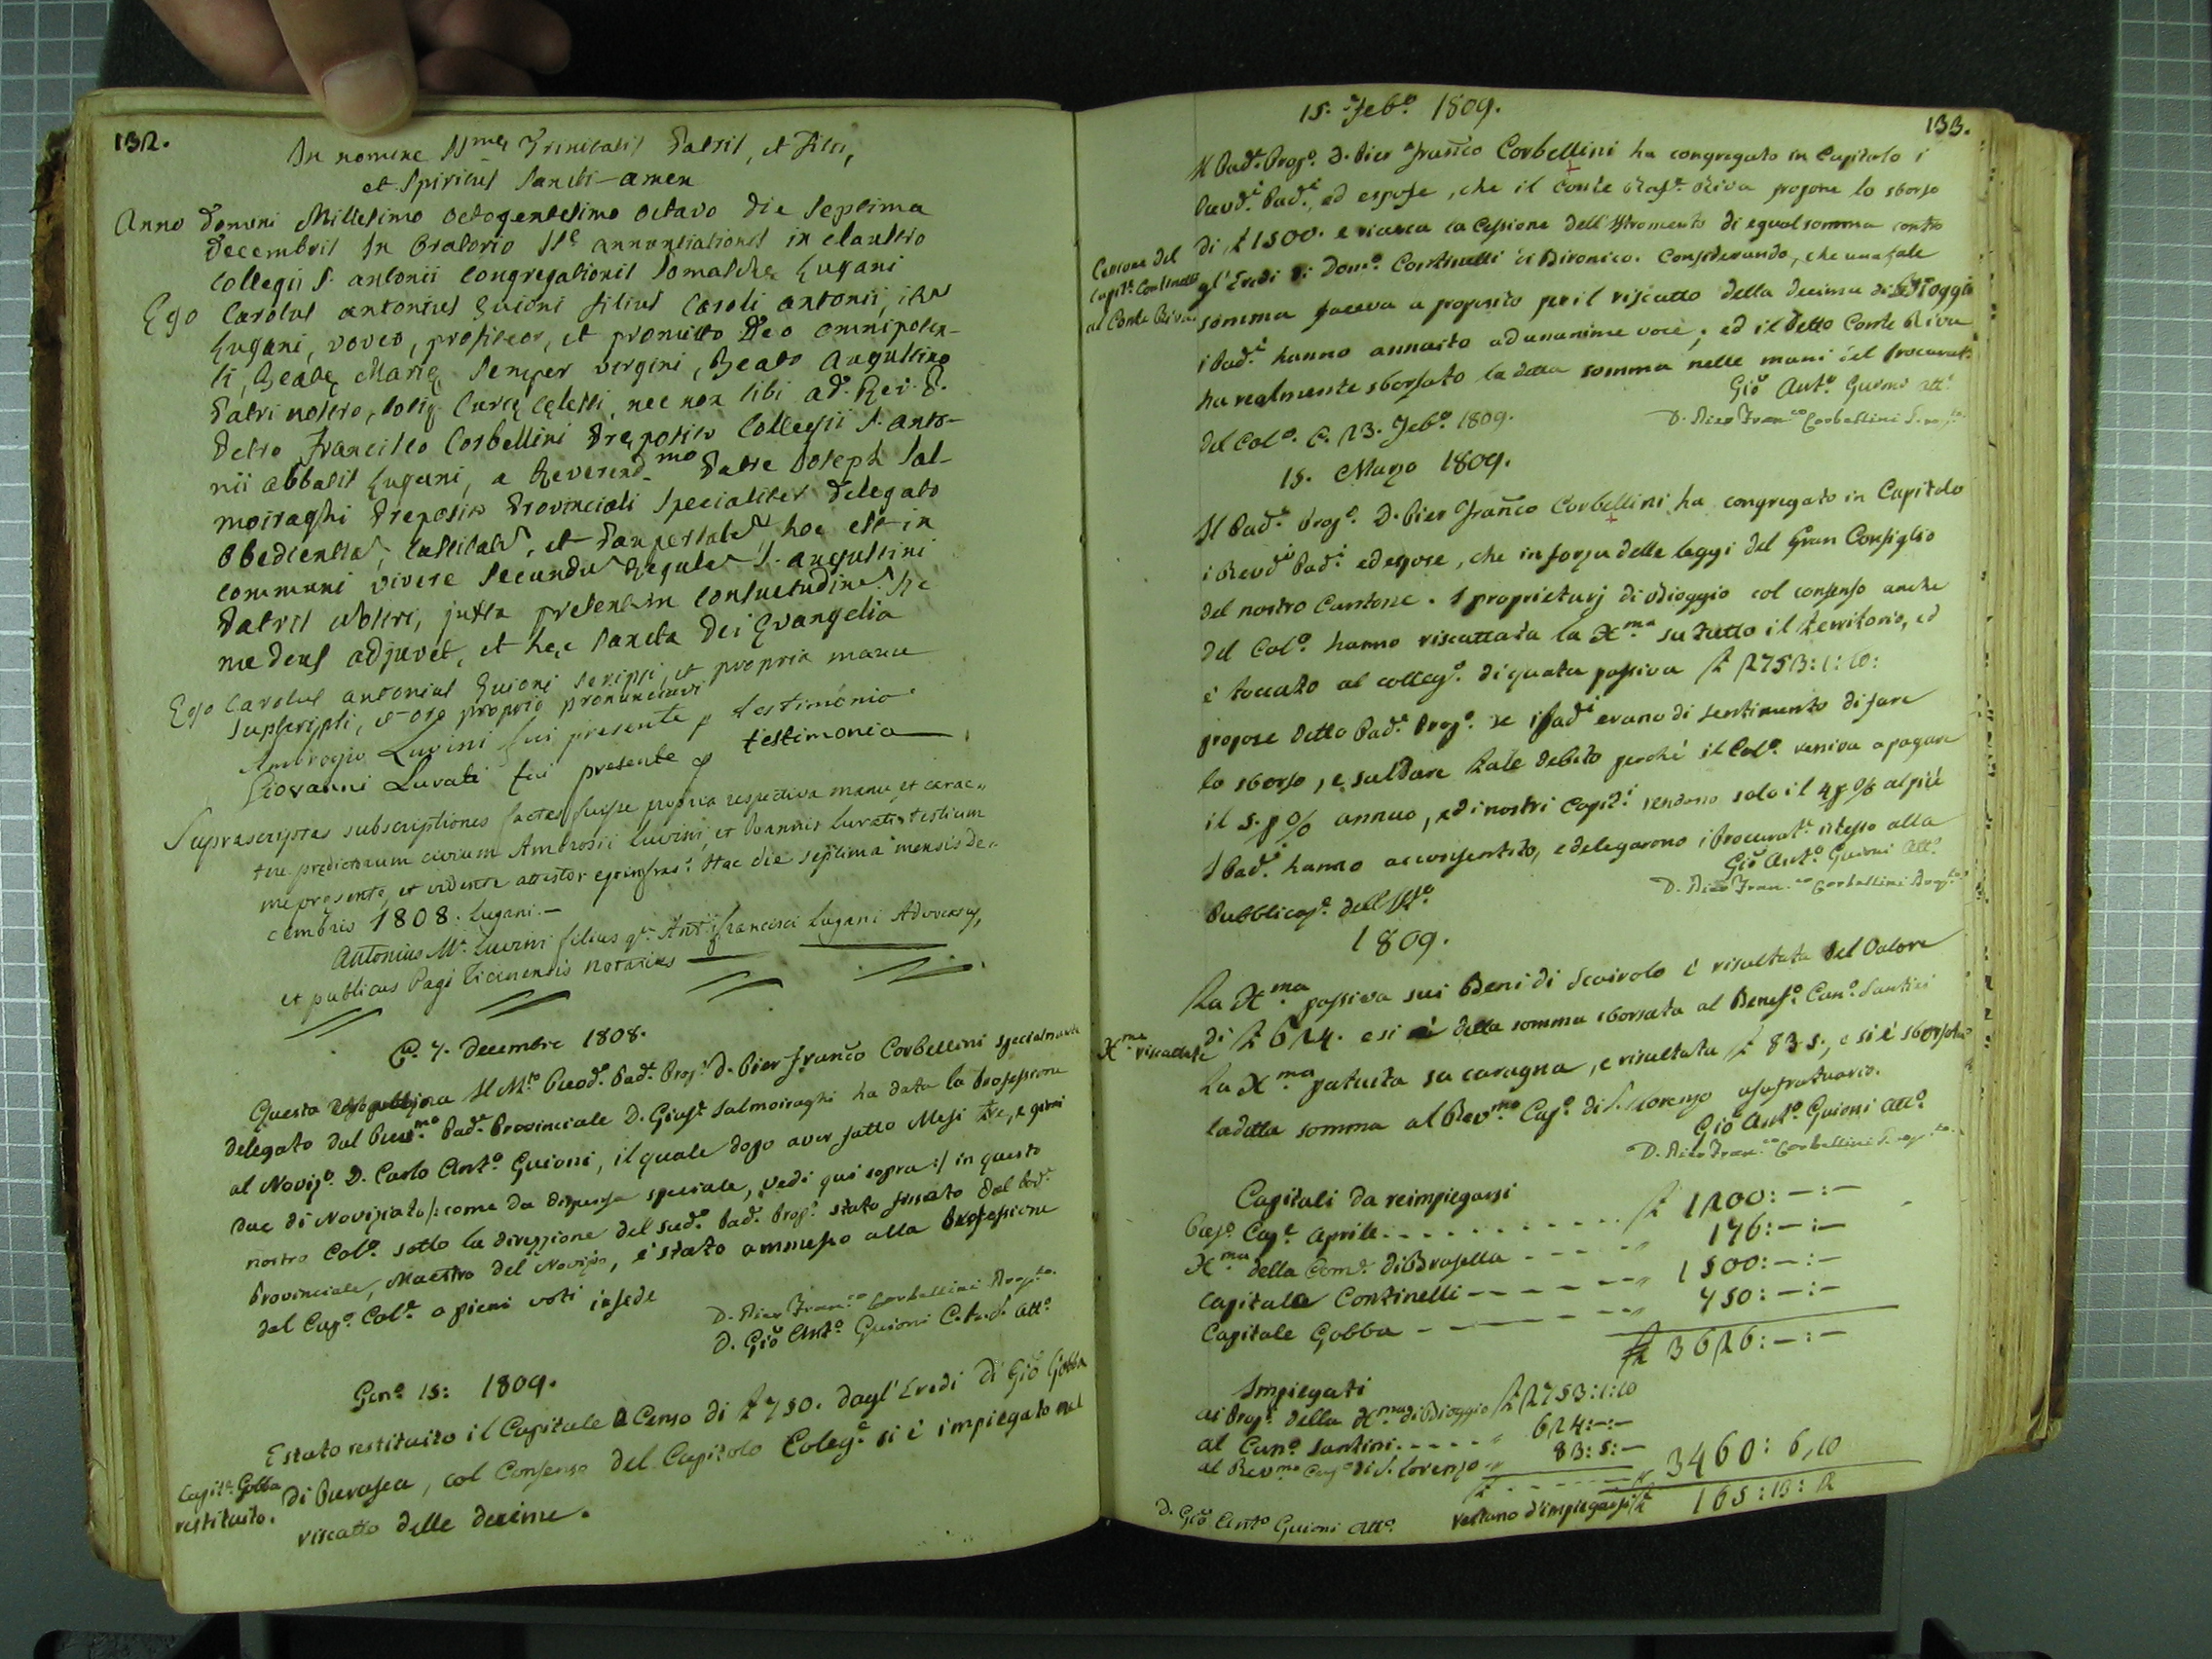 132.
In nomine SSmę Trinitatis Patris, et Filii,
et Spiritus Sancti - amen
Anno Domini Millesimo octogentesimo octavo die septima
Decembris In Oratorio SSę annuntiationis in claustro
Collegii S. antonii congregationis Somaschę Lugani
Ego Carolus antonius Guioni filius Caroli antonii,
Lugani, voveo, profiteor, et promitto Deo omnipoten-
ti, Beatę Marię semper virgini, Beato Augustino
Patri nostro, totiq. Curię cęlesti, nec non tibi ad. Rev. P.
Petro Francisco Corbellini Pręposito Collegii S. anto-
nii abbatis Lugani, a Reverend.mo Patre Joseph Sal-
moiraghi Preposito Provinciali specialiter delegato
obedientia, castitate, et paupertate, hoc est in
communi vivere secundu Regula S. augustini
Patris nostri, juxta presentem consuetudine. Sic
me deus adjuvet, et hęc sancta Dei Evangelia
Ego Carolus antonius Guioni scripsi, et propria manu
supscripsi, et ore proprio pronunciavi
Ambrogio Luvini fui presente p testimónio.
Giovanni Lurati fui presente p testimonio
Suprascriptas subscriptiones factas fuisse propria respectiva manu, et carac-
tere prędictorum civium Ambrosii Luvini, et Joannis Lurati testium
me presente, et vidente attestor ego infras.s Hac die septima mensis de-
cembris 1808. Lugani.-
Antonius M.a Luvini filius q.m Ant.i francisci Lugani Advocatus,
et publicus Pagi Ticinensis Notarius
C.a 7. Decembre 1808.
Questa mattina Il M.to Revd.o Pad.e Prop.o D. Pier Franco Corbellini specialmente
delegato dal Revr.mo Pad.e Provinciale D. Gius.e Salmoiraghi ha data la Professione
al Noviz.o D. Carlo Ant.o Guioni, il quale dopo aver fatto Mesi tre, e giorni
due di Noviziato /: come da dispensa speciale, vedi qui sopra :/ in questo
nostro Col.o sotto la direzzione del sud.o Pad.e Prop.o stato fissato dal Pad.e
Provinciale, Maestro del Novizio, è stato ammesso alla Professione
dal Cap.o Col.e a pieni voti in fede
D. Pier Fran.co Corbellini Prop.to
D. Gio Ant.o Guioni C.R.S. Att.o
Gen.o 15: 1809.
Capit.e Gobba
restituito.
È stato restituito il Capitale a Censo di £ 750. dagl'Eredi di Gio Gobba
di Purasca, col Consenso del Capitolo Coleg.e si è impiegato nel
riscatto delle decime.
133.
15. Feb.o 1809.
Il Pad.e Prop.o D. Pier Franco Corbellini ha congregato in Capitolo i
Revd.i Pad.i, ed espose, che il Conte Riva propone lo sborso
Cessione del
Capit.e Continelli
al Conte Riva
di £ 1500. e ricerca la Cessione dell'Istromento di egual somma contro
gl'Eredi di Dom.o Continelli di Bironico. Considerando, che una tale
somma faceva a proposito per il riscatto della decima di Bioggio
i Pad.i hanno annuito ad unanime voce; ed il detto Conte Riva
ha realmente sborsato la detta somma nelle mani del Procurat.e
del Col.o C. 23. Feb.o 1809.
Gio Ant.o Guioni Att.o
D. Pier Fran.co Corbellini Prop.to
15. Marzo 1809.
Il Pad.e Prop.o D. Pier Franco Corbellini ha congregato in Capitolo
i Revd.i Pad.i ed espose, che in forza delle leggi del Gran Consiglio
del nostro Cantone. I proprietarj di Bioggio col consenso anche
del Col.o hanno riscattata la X.ma su tutto il territorio, ed
è toccato al colleg.o di quota passiva £ 2753:1:10:
propose detto Pad.e Prop.o se i Pad.i erano di sentimento di fare
lo sborso, e saldare tale debito perchè il Col.o veniva a pagare
il 5. p % annuo, ed i nostri Capit.i rendono solo il 4 p % al più
I Pad.i hanno acconsentito, e delegarono i Procurat.e stesso alla
Pubblicaz.e dell'Ist.o
Gio Ant.o Guioni Att.o
D. Pier Fran.co Corbellini Prop.to
1809.
La X.ma passiva sui Beni di Scairolo è risultata del Valore
X.me riscattate
di £ 624. e si è detta somma sborsata al Benef.o Can.o Santini
La X.ma patuita su caragna, e risultata £ 83.5., e si è sborsata
la detta somma al Rev.mo Cap.o di S. Lorenzo usufratuario.
Gio Ant.o Guioni Att.o
D. Pier Fran.co Corbellini Prop.to
Capitali da reimpiegarsi
Cap.e Aprile - - - - - £ 1200:-:-
X.ma della Com.e di Brusella - - - " 176:-:-
Capitale Continelli - - - - " 1500:-:-
Capitale Gobba - - - - " 750:-:-
£ 3626:-:-
Impiegati
ai Prop.i della X.ma di Bioggio £ 2753:1:10
al Can.o Santini - - - - " 624:-:-
al Rev.mo Cap.o di S. Lorenzo " 83:5:-
£ - - - - £ 3460:6,10
restano d'impiegarsi £ 165:13:2
D. Gio Ant.o Guioni Att.o